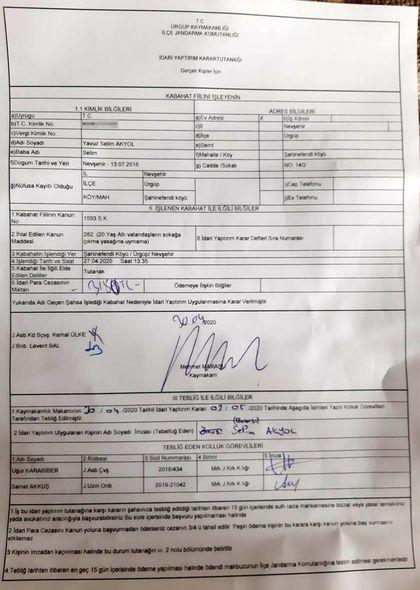 T.C
ÜRGÜP KAYMAKAMLIĞI
İLÇE JANDARMA KOMUTANLIĞI
İDARİ YAPTIRIM KARARTUTANAĞI
Gerçek Kişiler İçin
KABAHAT FİİLİNİ İŞLEYENİN
1.1 KİMLİK BİLGİLERİ ADRES BİLGİLERİ
a)Uyruğu T.C a)Ev Adresi X b)İş Adresi
b)T.C. Kimlik No: c)İl Nevşehir
c)Vergi Kimlik No: d)İlçe Ürgüp
d)Adı Soyadı Yavuz Selim AKYOL e)Semt
e)Baba Adı Selim f)Mahalle / Köy Şahinefendi köyü
f)Doğum Tarihi ve Yeri Nevşehir - 13.07.2016 g) Cadde /Sokak NO: 14/2
ğ)Nüfusa Kayıtlı Olduğu
İL Nevşehir
İLÇE Ürgüp ı)Cep Telefonu
KÖY/MAH Şahinefendi köyü i)Ev Telefonu
II. İŞLENEN KABAHAT İLE İLGİLİ BİLGİLER
1.Kabahat Fiilinin Kanun No 1593 S.K.
2.İhlal Edilen Kanun Maddesi
282. (20 Yaş Altı vatandaşların sokağa çıkma yasağına uymama)
8.İdari Yaptırım Karar Defteri Sıra Numarası
3.Kabahatin İşlendiği Yer Şahinefendi Köyü / Ürgüp/ Nevşehir
4.İşlendiği Tarih ve Saat 27.04.2020 Saat:13:35
5.Kabahat İle İlgili Elde Edilen Deliller Tutanak
6.İdari Para Cezasının Miktarı Ödemeye İlişkin Bilgiler
Yukarıda Adı Geçen Şahsa İşlediği Kabahat Nedeniyle İdari Yaptırım Uygulanmasına Karar Verilmiştir.
30.04/2020
J.Asb.Kd.Bçvş. Kemal ÜLKE
J.Bnb. Levent BAL
Mehmet MARAŞLI
Kaymakam
III.TEBLİĞ İLE İLGİLİ BİLGİLER
1.Kaymakamlık Makamının 30/04/2020 Tarihli İdari Yaptırım Kararı 02/05/2020 Tarihinde Aşağıda İsimleri Yazılı Kolluk Görevlileri Tarafından Tebliğ Edilmiştir
2 İdari Yaptırım Uygulanan Kişinin Adı Soyadı İmzası (Tebellüğ Eden) Selim AKYOL
TEBLİĞ EDEN KOLLUK GÖREVLİLERİ
1.Adı Soyadı 2.Rütbesi 3.Sicil Numarası 4.Birimi 5.İmza
Uğur KARABİBER J.Asb.Çvş 2018/434 Mrk.J.Krk.K.lığı
Samet AKKUŞ J.Uzm.Onb 2019-21042 Mrk.J.Krk.K.lığı
1.İş bu idari yaptırım tutanağına karşı kararın şahsınıza tebliğ edildiği tarihten itibaren 15 gün içerisinde sulh ceza mahkemesine bizzat veya yasal temsilciniz
yada avukatınız aracılığıyla başvurabilirsiniz.Bu süre içerisinde başvuru yapılmaması halinde
2.İdari Para Cezasını Kanun yoluna başvurmadan öderseniz cezanın 3/4 ü tahsil edilir. Peşin ödeme kişinin bu karara karşı kanun yoluna baş vurmasını
etkilemez
3 Kişinin imzadan kaçınması halinde bu durum tutanağın III. 2 nolu bölümünde belirtilir
4.Tebliğ tarihten itibaren en geç 15 gün içerisinde ödeme yapılması halinde ödendi makbuzunun İlçe Jandarma Komutanlığına teslim edilmesi gerekmektedir.